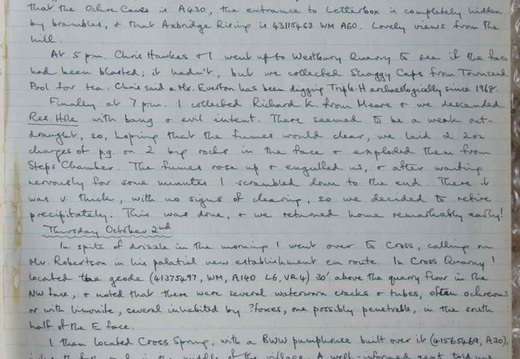 that the Ochre Caves is A430, the entrance to Letterbox is completely hidden
by brambles, & that Axbridge Rising is 43115463 WM A60. Lovely views from the
hill.
At 5 pm. Chris Hawkes & I went up to Westbury Quarry to see if the face
had been blasted; it hadn't, but we collected Shaggy Caps from Townsend
Pool for tea. Chris said a Mr. Everton has been digging Triple-H archaeologically since 1968.
Finally at 7 pm. I collected Richard K. from Meare & we descended
Res. Hole with bang & evil intent. There seemed to be a weak out-
draught, so, hoping that the fumes would clear, we laid 2 2oz
charges of p.g. on 2 big rocks in the face & exploded them from
Steps Chamber. The fumes rose up & engulfed us, & after waiting
nervously for some minutes I scrambled down to the end. There it
was v. thick, with no signs of clearing, so we decided to retire
precipitately. This was done, & we returned home remarkably early!
Thursday October 2nd
In spite of drizzle in the morning I went over to Cross, calling on
Mr. Robertson in his palatial new establishment en route. In Cross Quarry I
located the geode (41375497, WM, A140 L6, VR4) 30' above the quarry floor in the
NW face, & noted that there were several waterworn cracks & tubes, often ochreous
or with limonite, several inhabited by ?foxes, one possibly penetrable, in the south
half of the E face.
I then located Cross Spring, with a BWW pumphouse built over it (41565469, A30),
in the middle of the village. A well-informed